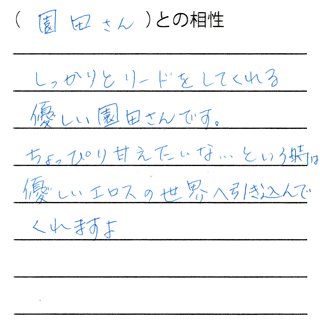 ( 園田さん )との相性
しっかりとリードをしてくれる
優しい園田さんです。
ちょっぴり甘えたいな…という時は
優しいエロスの世界へ引き込んで
くれますよ